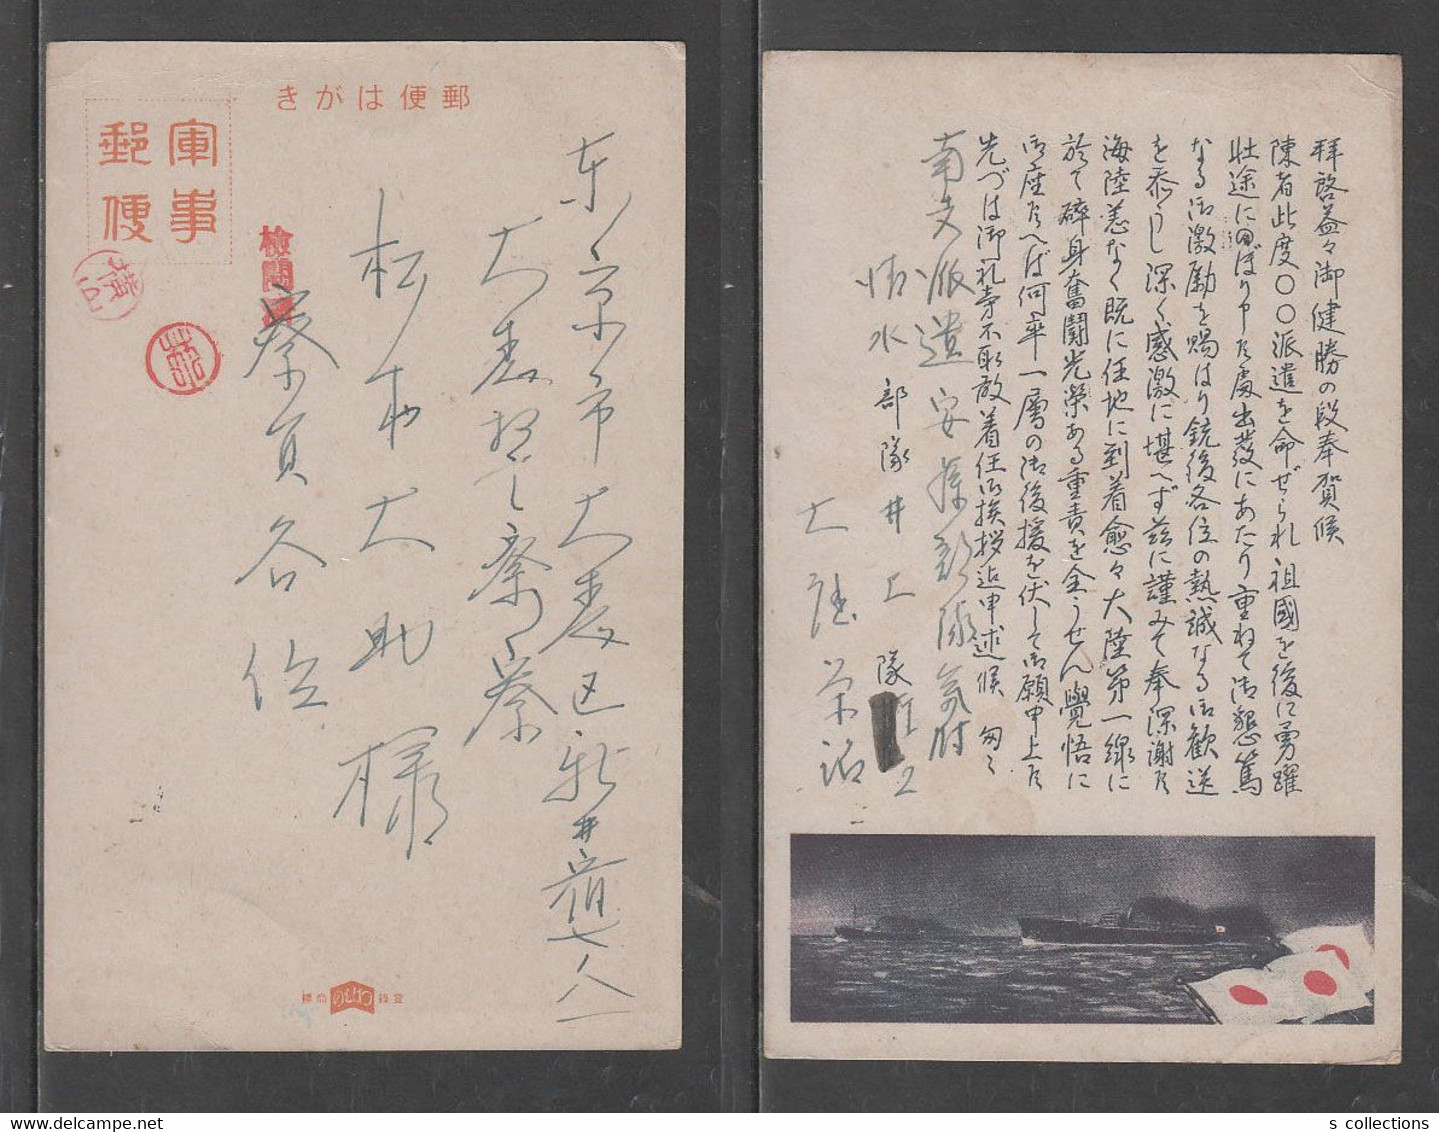 郵便はがき
軍事
郵便
検閲済
東京市大森区新井宿七ノ八一
大森授産寮
松本大助様
寮員各位
登録 商標
拝啓益々御健勝の段奉賀候
陳者此度〇〇派遣を命ぜられ祖國を後に勇躍
壮途にのぼり申候處出發にあたり重ねて御懇篤
なる御激励を賜はり銃後各位の熱誠なる御歓送
を忝うし深く感激に堪へず茲に謹みて奉深謝候
海陸恙なく既に任地に到着愈々大陸第一線に
於て碎身奮鬪光榮ある重責を全うせん覺悟に
御座候へば何卒一層の御後援を伏して御願申上候
先づは御礼旁不取敢着任御挨拶迄申述候 匆々
南支派遣安藤部隊気付
清水部隊井上隊
大庭栄治
s collections